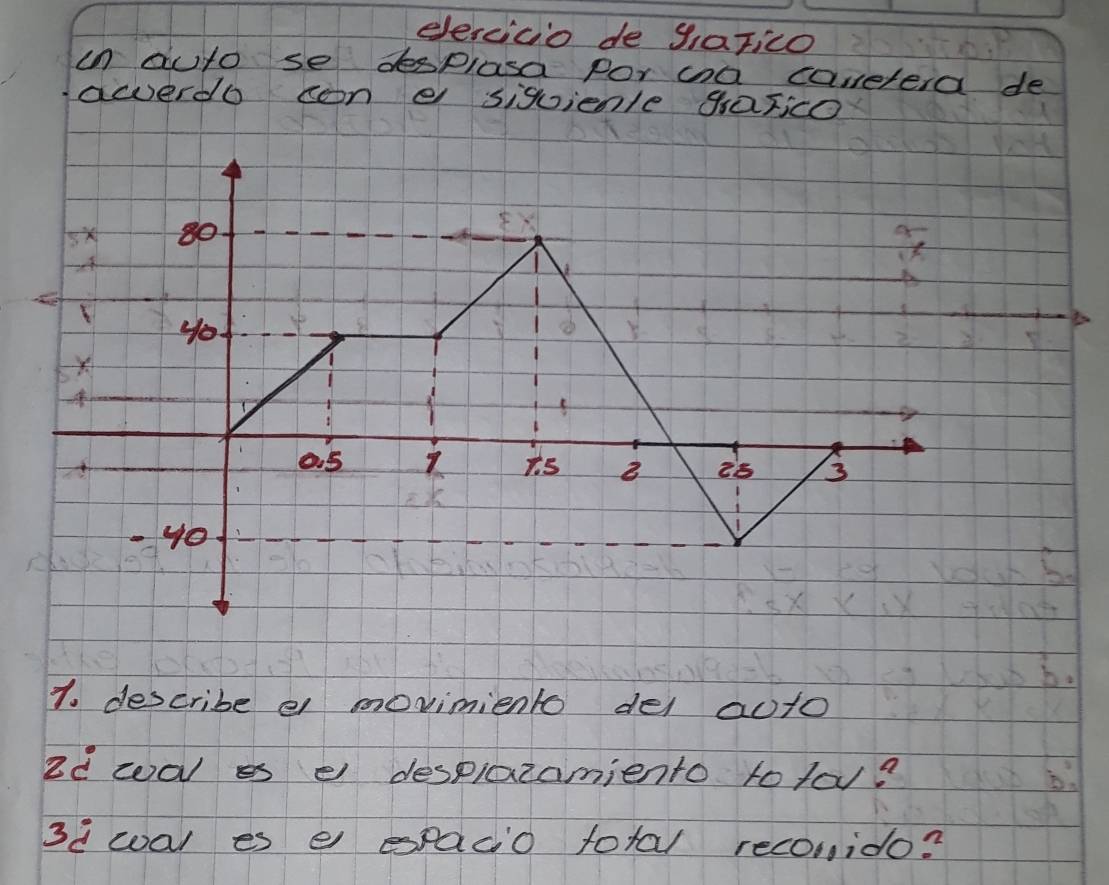 ejercicio de grafico
un auto se desplasa por una carretera de
acuerdo con el siguiente grafico
80
40
0.5 1 1.5 2 2.5 3
-40
1. describe el movimiento del auto
2¿ cual es el desplazamiento total?
3¿ cual es el espacio total recorrido?